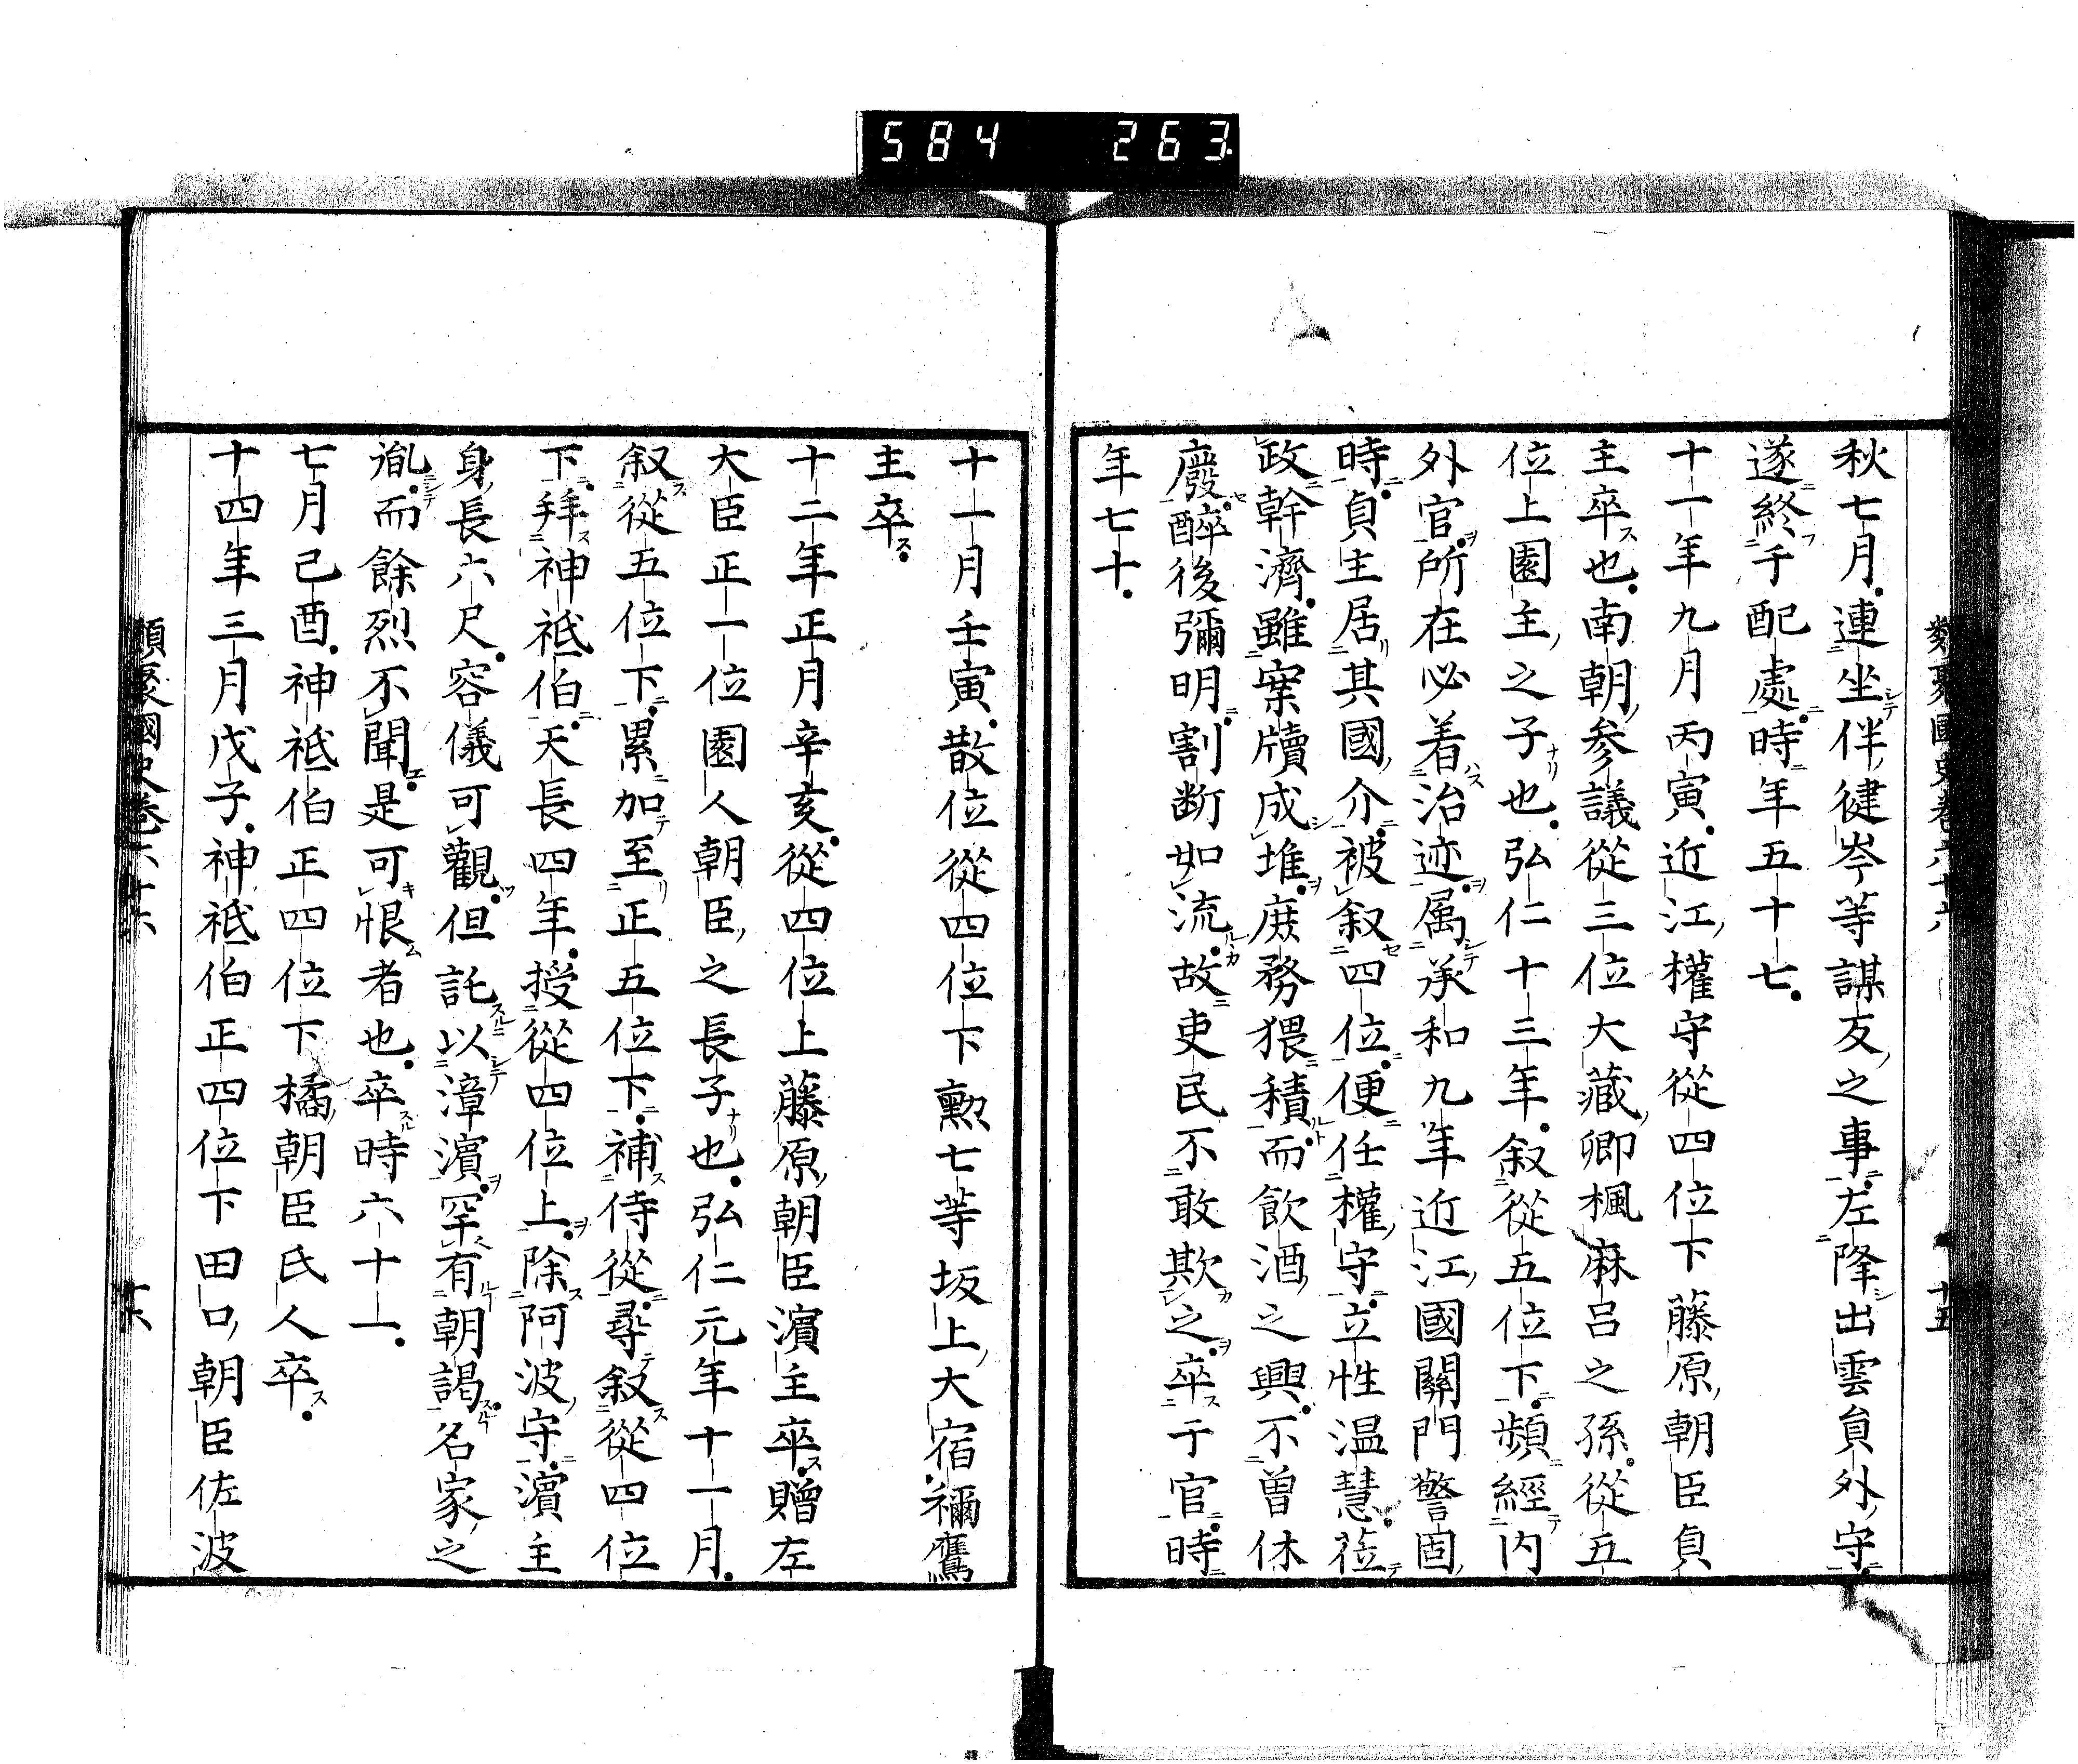 584 263
類聚國史卷六十六 十五
秋七月連坐伴健岑等謀反之事左降出雲員外守
遂終于配處時年五十七
十一年九月丙寅近江權守從四位下藤原朝臣貞
主卒也南朝参議從三位大藏卿楓麻呂之孫從五
位上園主之子也弘仁十三年叙從五位下頻經内
外官所在必着治迹属承和九年近江國關門警固
時貞主居其國介被叙四位便任權守立性温慧莅
政幹濟雖案牘成堆庶務猥積而飲酒之興不曽休
廢醉後彌明割断如流故吏民不敢欺之卒于官時
年七十
十一月壬寅散位從四位下勲七等坂上大宿禰鷹
主卒
十二年正月辛亥從四位上藤原朝臣濱主卒贈左
大臣正一位園人朝臣之長子也弘仁元年十一月
叙從五位下累加至正五位下補侍從尋叙從四位
下拜神祇伯天長四年授從四位上除阿波守濱主
身長六尺容儀可觀但託以漳濱罕有朝謁名家之
胤而餘烈不聞是可恨者也卒時六十一
七月己酉神祇伯正四位下橘朝臣氏人卒
十四年三月戊子神祇伯正四位下田口朝臣佐波
類聚國史卷六十六